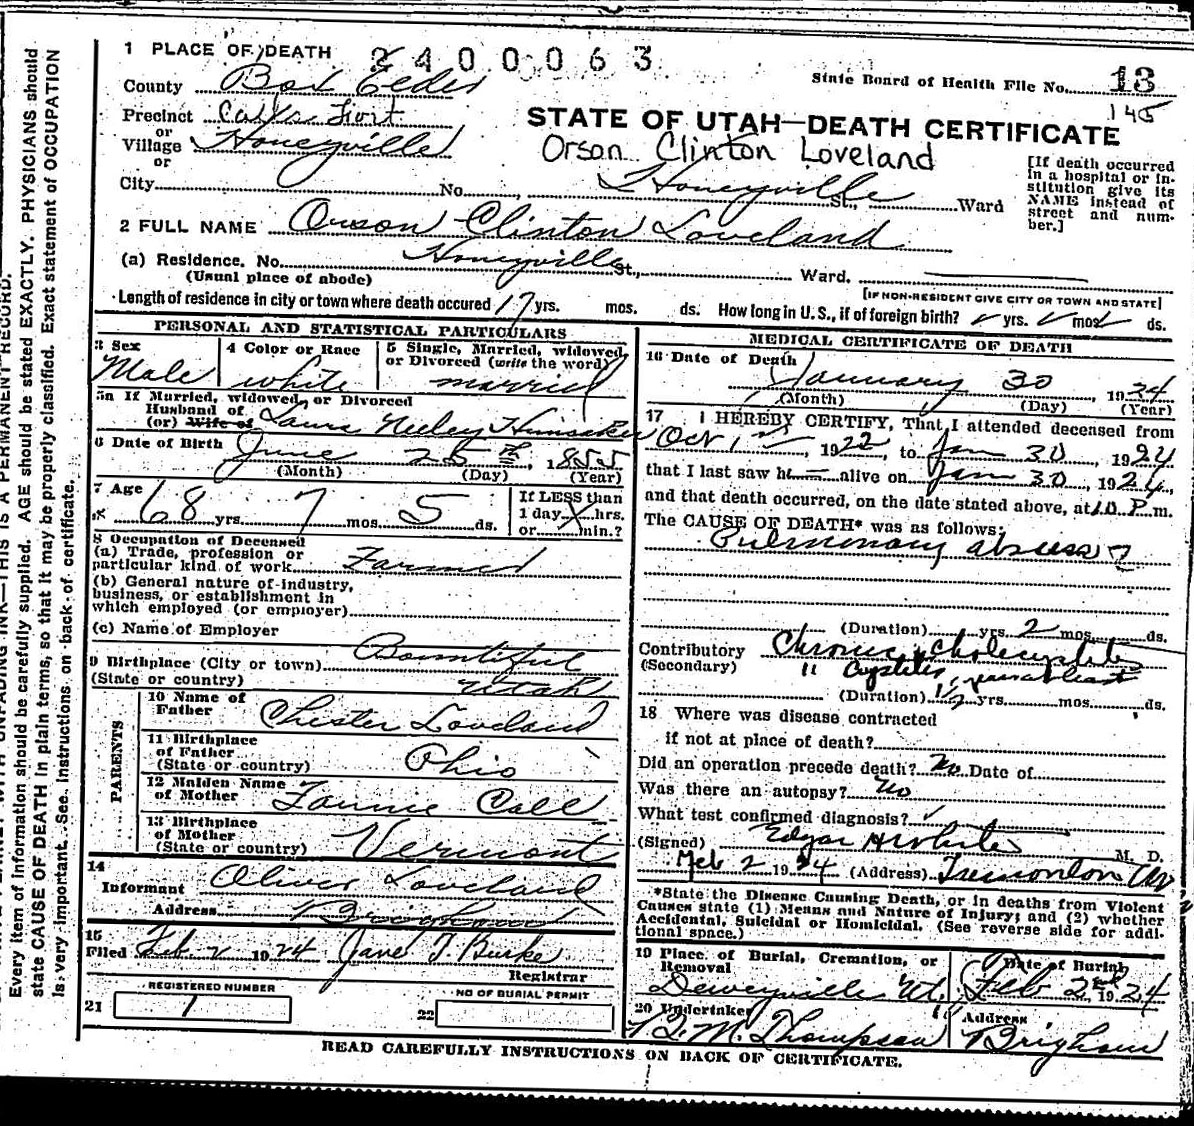 1 PLACE OF DEATH 2400063
County Box Elder
State Board of Health File No. 13
145
Precinct Calls Fort
or
Village Honeyville
or
STATE OF UTAH—DEATH CERTIFICATE
Orson Clinton Loveland
City No. Honeyville St., Ward
[If death occurred in a hospital or institution give its NAME instead of street and number.]
2 FULL NAME Orson Clinton Loveland
(a) Residence. No. Honeyville St., Ward.
(Usual place of abode)
[IF NON-RESIDENT GIVE CITY OR TOWN AND STATE]
Length of residence in city or town where death occured 17 yrs. mos. ds. How long in U. S., if of foreign birth? yrs. mos. ds.
PERSONAL AND STATISTICAL PARTICULARS
3 Sex 4 Color or Race 5 Single, Married, widowed, or Divorced (write the word)
Male white married
5a If Married, widowed, or Divorced
Husband of
(or) Wife of Laura Neeley Hunsaker
6 Date of Birth June 25th, 1855
(Month) (Day) (Year)
7 Age If LESS than
68 yrs. 7 mos. 5 ds. 1 day hrs.
or min.?
8 Occupation of Deceased
(a) Trade, profession or
particular kind of work Farmer
(b) General nature of industry,
business, or establishment in
which employed (or employer)
(c) Name of Employer
9 Birthplace (City or town) Bountiful
(State or country) Utah
PARENTS
10 Name of
Father Chester Loveland
11 Birthplace
of Father
(State or country) Ohio
12 Maiden Name
of Mother Fannie Call
13 Birthplace
of Mother
(State or country) Vermont
14
Informant Oliver Loveland
Address Brigham
15
Filed Feb. 2 1924 Jane T. Burke
Registrar
REGISTERED NUMBER NO OF BURIAL PERMIT
21 1 22
MEDICAL CERTIFICATE OF DEATH
16 Date of Death
January 30, 1924
(Month) (Day) (Year)
17 I HEREBY CERTIFY, That I attended deceased from
Oct, 1922, to Jan 30, 1924
that I last saw h alive on Jan 30, 1924,
and that death occurred, on the date stated above, at 10 P.m.
The CAUSE OF DEATH* was as follows:
Pulmonary abscess ?
(Duration) yrs. 2 mos. ds.
Contributory Chronic Cholecystitis
(Secondary) " Cystitis,
(Duration) 1/2 yrs. mos. ds.
18 Where was disease contracted
if not at place of death?
Did an operation precede death? No Date of
Was there an autopsy? No
What test confirmed diagnosis?
(Signed) Edgar H White M. D.
Feb 2 1924 (Address) Tremonton
*State the Disease Causing Death, or in deaths from Violent
Causes state (1) Means and Nature of Injury; and (2) whether
Accidental, Suicidal or Homicidal. (See reverse side for addi-
tional space.)
19 Place of Burial, Cremation, or Removal Date of Burial
Deweyville Ut. Feb 2nd 1924
20 Undertaker Address
Thompson Brigham
READ CAREFULLY INSTRUCTIONS ON BACK OF CERTIFICATE.
Every item of information should be carefully supplied. AGE should be stated EXACTLY. PHYSICIANS should
state CAUSE OF DEATH in plain terms, so that it may be properly classified. Exact statement of OCCUPATION
is very important. See instructions on back of certificate.